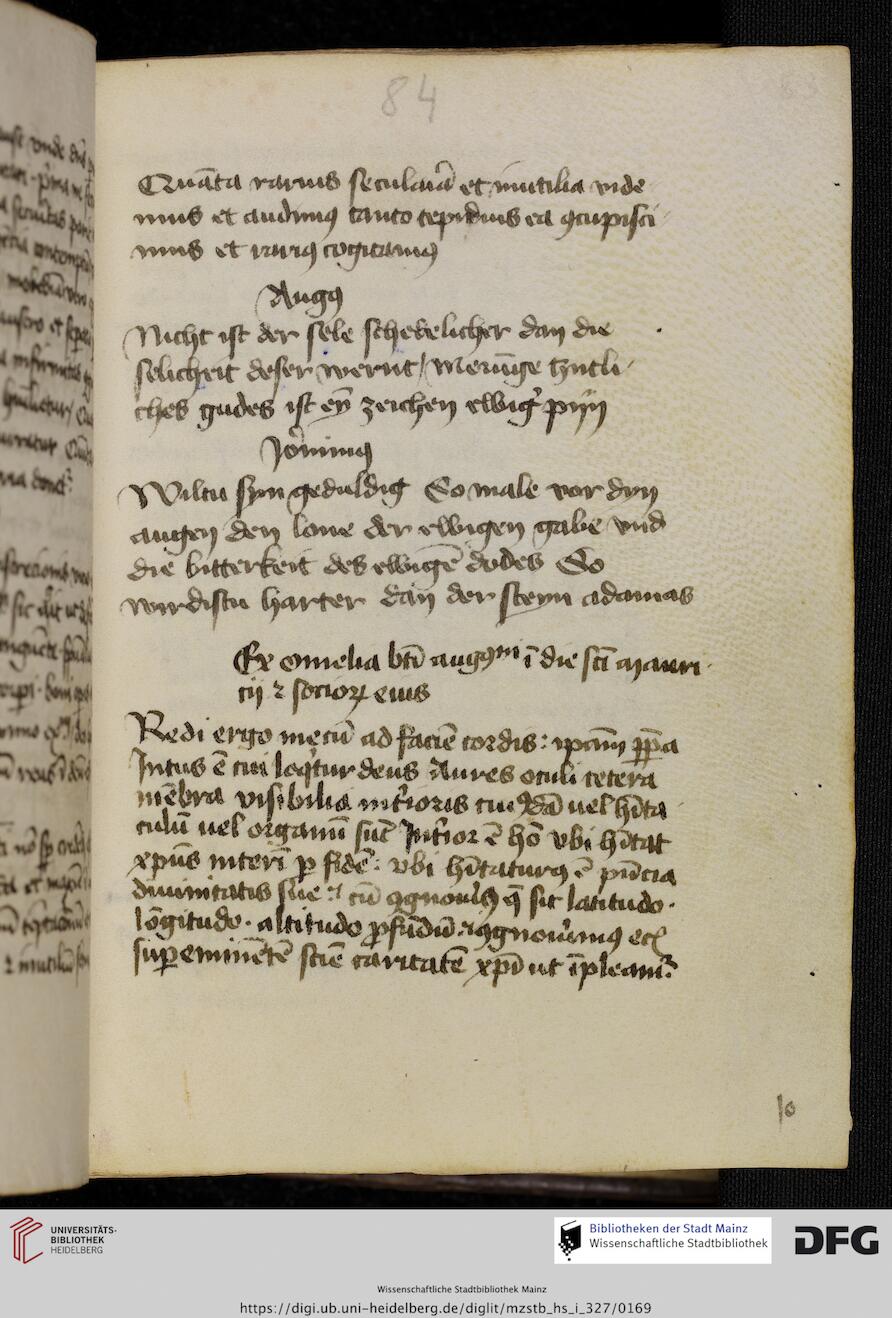 84
Quāta rarius seculariā et inutilia vide
mus et audimꝰ tanto tepidius ea ꝯcupisci
mus et rariꝰ cogitamꝰ
Augꝰ
Nicht ist der sele schedelicher dan die
selicheit deser wernt / Menīge tzitli
ches gudes ist eyn̄ zeichen ewigʼ pyn
Jeronimꝰ
Wiltu syn geduldig So male vor dyn
augen den lone der ewigen gabe vnd
die bitterkeit des ewigē dodes So
wirdistu harter dan der steyn adamas
Ex omelia btī augꝰⁿⁱ ī die sctī mauri
cij ⁊ socioꝝ eius
Redi ergo mecū ad faciē cordis : ipam ꝑpa
Intus ē cui loqʼtur deus Aures oculi cetera
mēbra visibilia intʼioris tui uel hītā
culū uel organū sūt Intʼior ē hō vbi hītat
xpūs interī ꝑ fidē : vbi hītaturꝰ ē
diuinitatis sue : cū ꝯgnouʼīs q̄ sit latitudo ·
lōgitudo · altitudo ꝓfūdū · ꝯgnouʼimꝰ
suꝑeminētē sciē caritatē xpī ut īpleamʼ
10
UNIVERSITÄTS-
BIBLIOTHEK
HEIDELBERG
Bibliotheken der Stadt Mainz
Wissenschaftliche Stadtbibliothek
DFG
Wissenschaftliche Stadtbibliothek Mainz
https://digi.ub.uni-heidelberg.de/diglit/mzstb_hs_i_327/0169